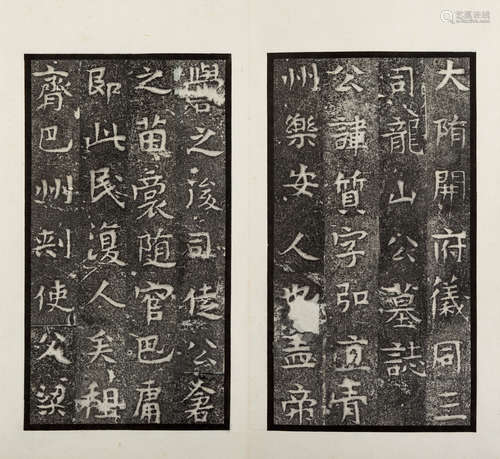 大隋開府儀同三
司龍山公墓誌
公諱質字弘直青
州樂安人也盖帝
嚳之後司徒公蒼
之苗裔随官巴庸
即此民復人矣祖
齊巴州刺使父梁